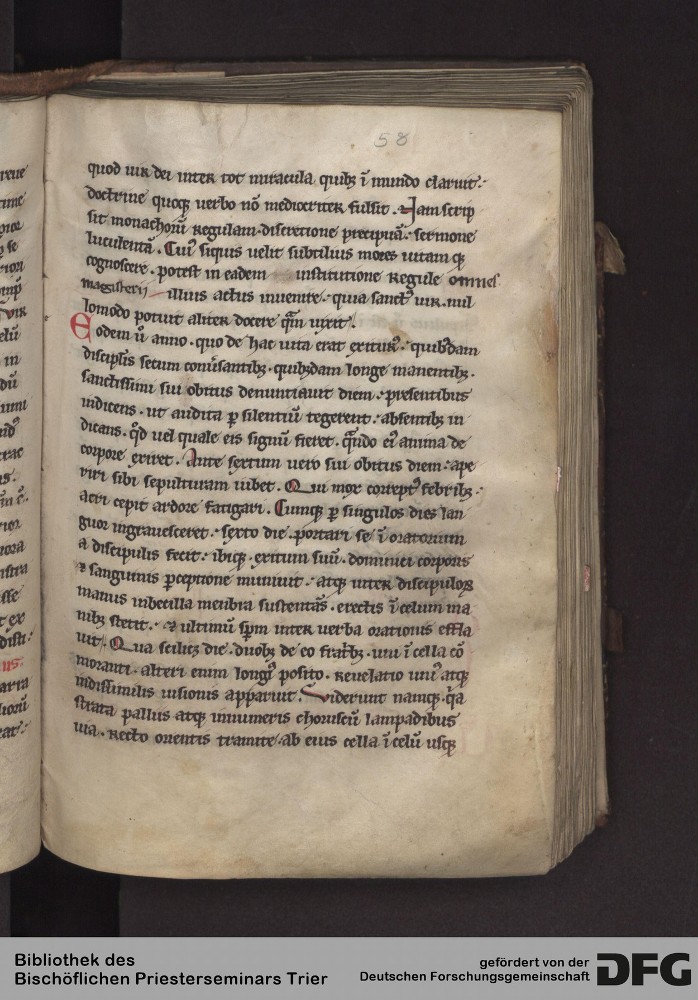 58
quod uir dei inter tot miracula quibꝫ ĩ mundo claruit·
doctrine quoqꝫ uerbo nõ mediocriter fulsit. Nam scrip
sit monachoꝝ regulam· discretione precipuã· sermone
luculentã. Cuiꝰ siquis uelit subtilius mores uitam qꝫ
cognoscere· potest in eadem institutione regule omnes
magisterij illius actus inuenire· quia sanctꝰ uir· nul
lomodo potuit aliter docere q̃m uixit.
Eodem ũ anno· quo de hac uita erat exiturꝰ· quibꝰdam
discipl̃is secum conũsantibꝫ· quibꝫdam longe manentibꝫ·
sanctissimi sui obitus denuntiauit diem· presentibus
indicens· ut audita ꝑ silentiũ tegerent· absentibꝫ in
dicans· qđ uel quale eis signũ fieret· qñdo eiꝰ anima de
corpore exiret. Ante sextum uero sui obitus diem· ape
riri sibi sepulturam iubet. Qui mox correptꝰ febribꝫ·
acri cepit ardore fatigari. Cumqꝫ ꝑ singulos dies lan
guor ingrauesceret· sexto die· portari se ĩ oratorium
a discipulis fecit· ibiqꝫ· exitum suũ· dominici corporis
⁊ sanguinis ꝑceptione muniuit· atqꝫ inter discipuloꝝ
manus inbecilla menbra sustentãs· erectis ĩ celum ma
nibꝫ stetit· ⁊ ultimũ sp̃m inter uerba orationis effla
uit. Qua scilicꝫ die· duobꝫ de eo fratr̃bꝫ· uni ĩ cella cõ
moranti· alteri enim longiꝰ posito· reuelatio uniꝰ atqꝫ
indissimilis uisionis apparuit. Viderunt namqꝫ· q̃a
strata pallus atqꝫ innumeris choruscũ lampadibus
uia· recto orientis tramite· ab eius cella ĩ celũ usqꝫ
Bibliothek des
Bischöflichen Priesterseminars Trier
gefördert von der
Deutschen Forschungsgemeinschaft
DFG